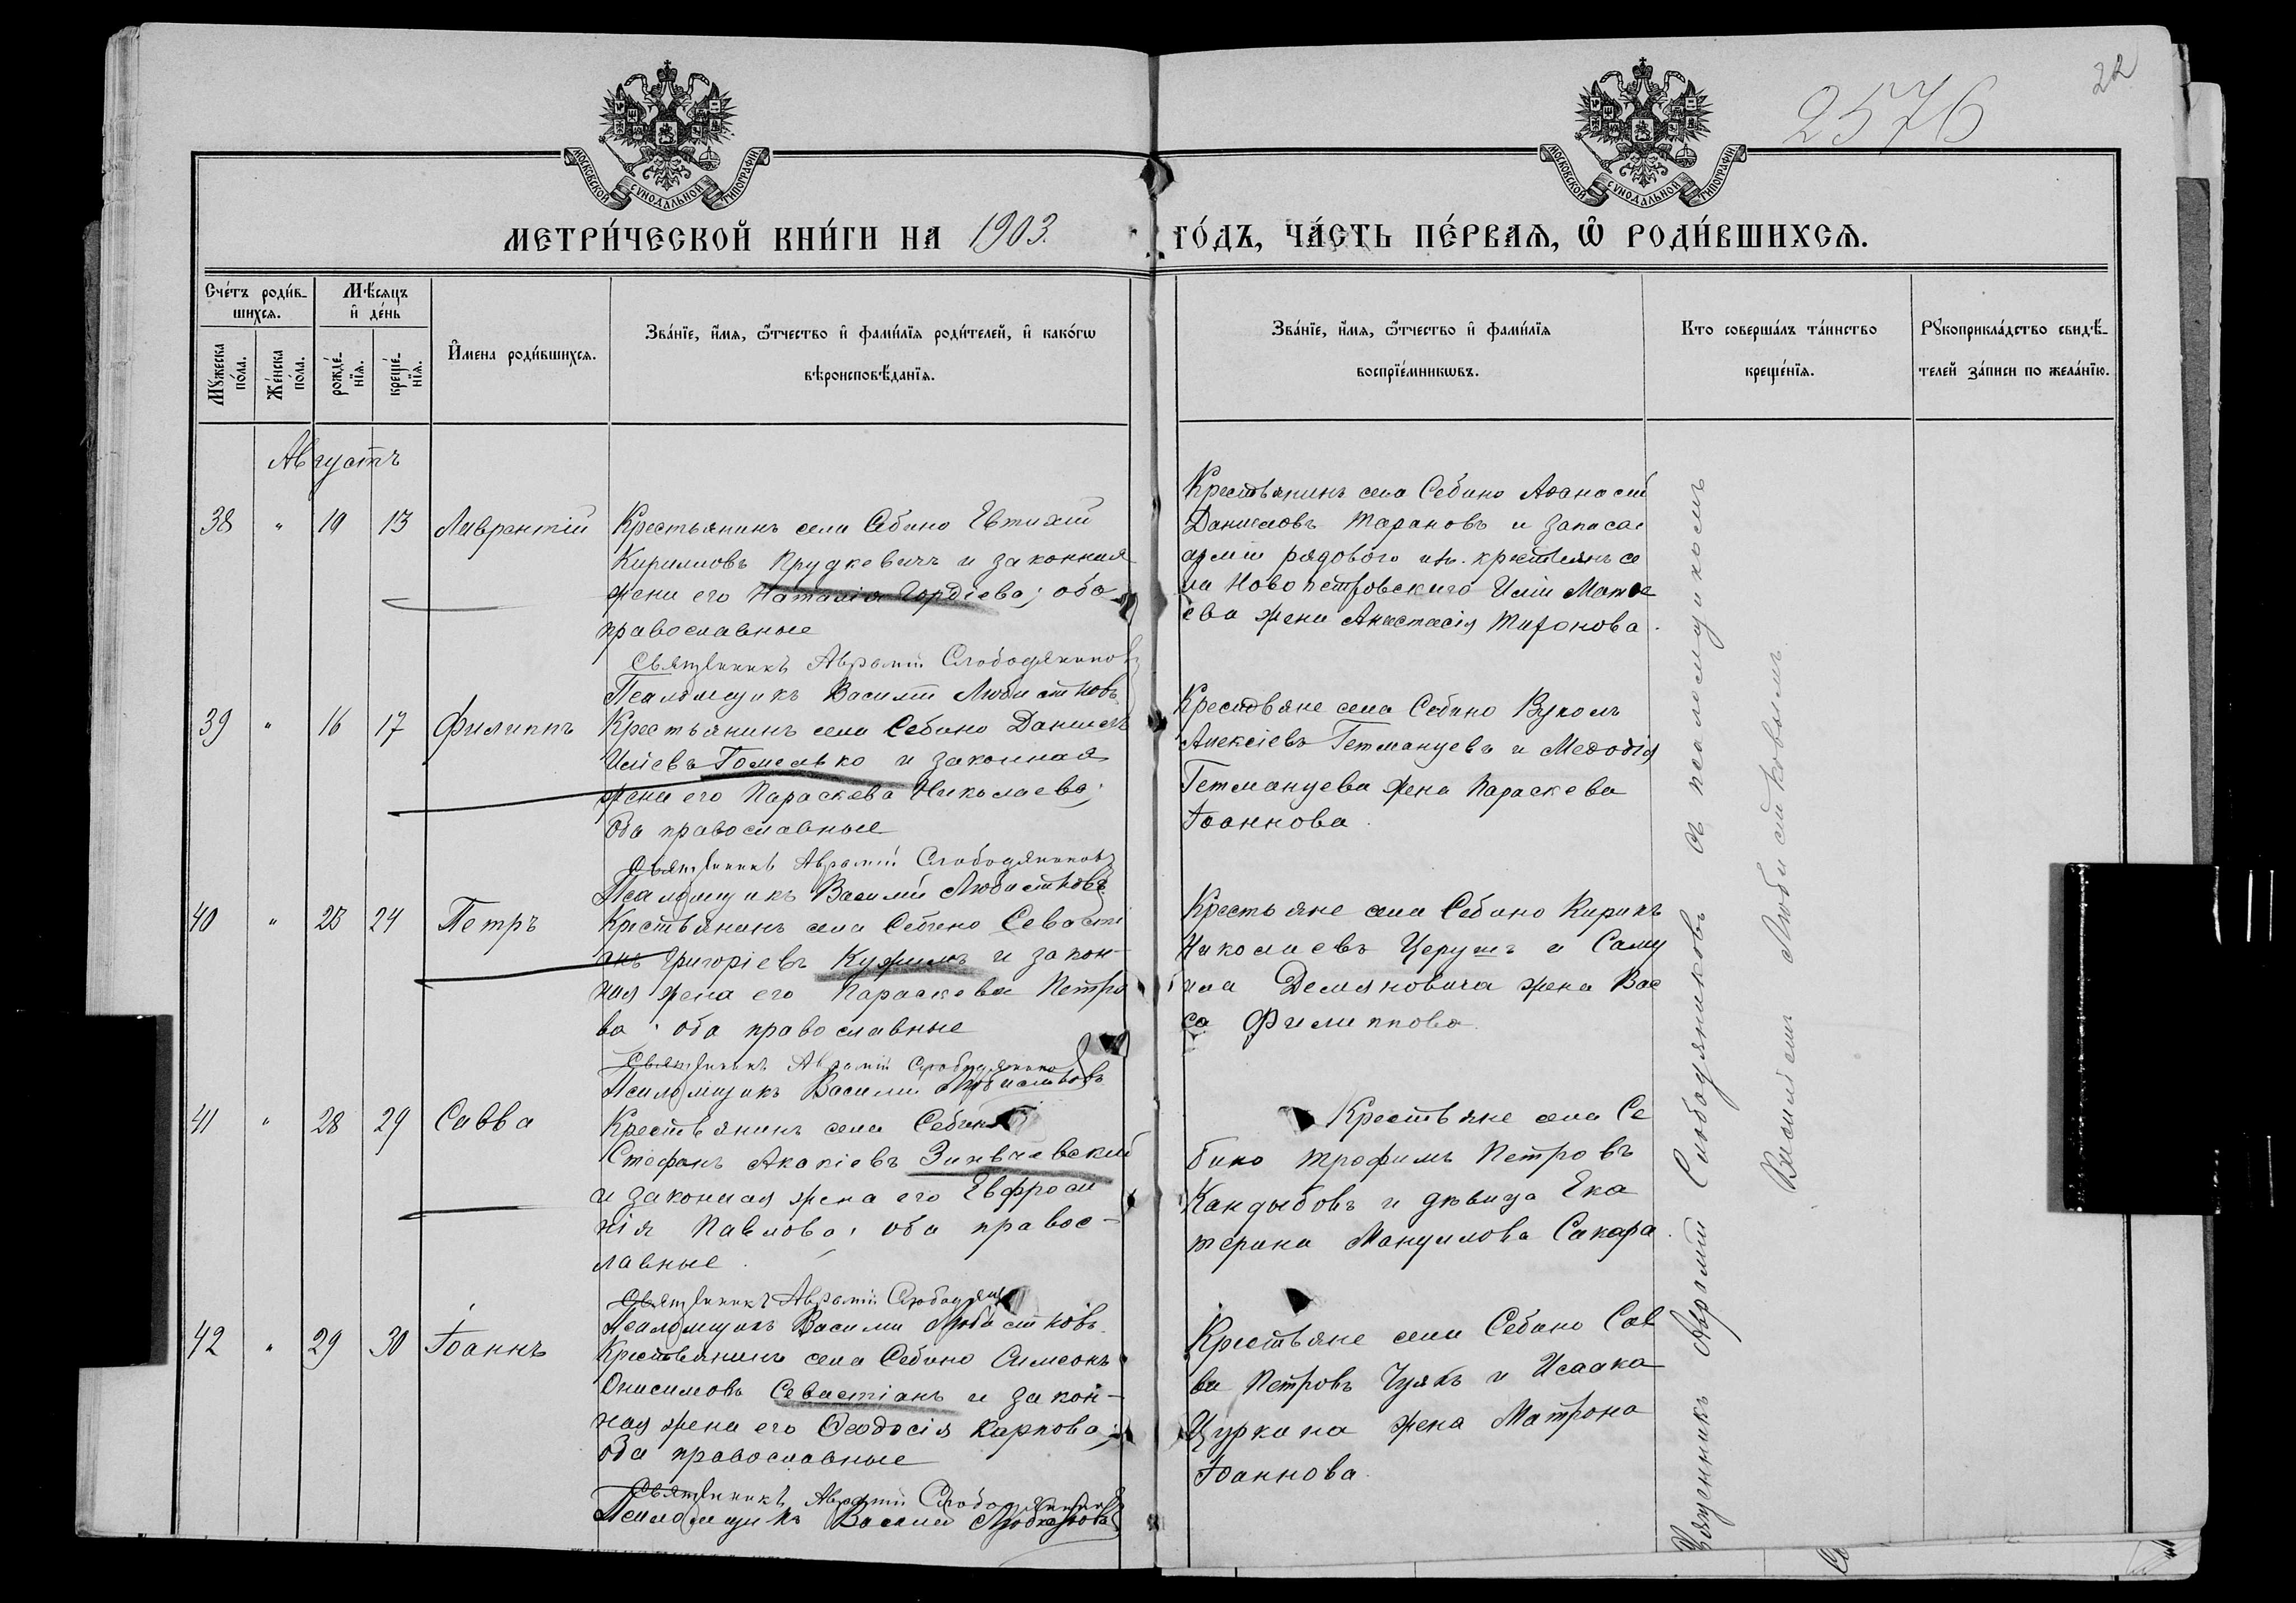 2576
22
МОСКОВСКОЙ СѴНОДАЛЬНОЙ ТИПОГРАФІИ
МОСКОВСКОЙ СѴНОДАЛЬНОЙ ТИПОГРАФІИ
МЕТРИ́ЧЕСКОЙ КНИ́ГИ НА 1903. ГО́ДЪ, ЧА́СТЬ ПЕ́РВАѦ, Ѡ҆ РОДИ́ВШИХСѦ.
Сче́тъ роди́в-
шихсѧ.
Мѣ́сѧцъ
и҆ де́нь
Мꙋ́жеска
по́ла.
Же́нска
по́ла.
рожде́-
нїѧ.
креще́-
нїѧ.
И҆мена роди́вшихсѧ.
Зва́нїе, и҆́мѧ, ѻ҆́тчество и҆ фами́лїѧ роди́телей, и҆ како́гѡ
вѣроисповѣ́данїѧ.
Зва́нїе, и҆́мѧ, ѻ҆́тчество и҆ фами́лїѧ
воспрїе́мникѡвъ.
Кто соверша́лъ та́инство
креще́нїѧ.
Рꙋкоприкла́дство свидѣ́-
телей за́писи по жела́нїю.
Августъ
38 " 10 13 Лаврентій
Крестьянинъ села Себино Евтихій
Кирилловъ Прудкевичъ и законная
жена его Наталія Гордіева; оба
православные
Священникъ Аврамій Слободяниковъ
Псаломщикъ Василій Любистковъ
Крестьянинъ села Себино Аѳанасій
Данииловъ Тарановъ и запасн.
арміи рядового из. крестьянъ се
ла Новопетровскаго Иліи Матѳе
ева жена Анастасія
39 " 16 17 Филиппъ
Крестьянинъ села Себино Даниилъ
Иліевъ Гомелько и законная
жена его Параскева Николаева;
Оба православные
Священникъ Аврамій Слободяниковъ
Псаломщикъ Василій Любистковъ
Крестьяне села Себино Вуколъ
Алексіевъ Гетманцевъ и Меѳодія
Гетманцева жена Параскева
Іоаннова.
40 " 23 24 Петръ
Крестьянинъ села Себино Севасті
анъ Григоріевъ и закон-
ная жена его Параскева Петро
ва; оба православные
Священникъ Аврамій Слободяниковъ
Псаломщикъ Василій Любистковъ
Крестьяне села Себино Кирикъ
Николаевъ Церушъ и Саму
ила Демяновича жена Вас
са Филиппова.
41 " 28 29 Савва
Крестьянинъ села Себино
Стефанъ Акакіевъ Зинвчевскій
и законная жена его Евфроси
нія Павлова; оба правос-
лавные.
Священникъ Аврамій
Псаломщикъ Василій Любистковъ
Крестьяне села Се
бино Трофимъ Петровъ
Кандыбовъ и дѣвица Ека
терина Мануилова Сакара.
42 " 29 30 Іоаннъ
Крестьянинъ села Себино Симеонъ
Онисимовъ Севастіанъ и закон-
ная жена его Ѳеодосія Карпова;
оба православные
Священникъ Аврамій Слободяниковъ
Псаломщикъ Василій Любистковъ
Крестьяне села Себино Сав
ва Петровъ Чуякъ и Исаака
Цуркана жена Матрона
Іоаннова.
Священникъ Аврамій Слободяниковъ съ псаломщикомъ
Василіемъ Любистковымъ